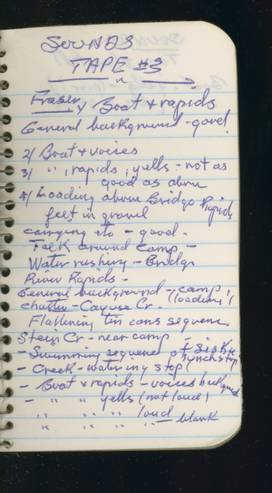 SOUNDS
TAPE #3
Fraser
1/ Boat & rapids
General background - good!
2/ Boat & voices
3/ " , rapids, yells - not as
good as above
4/ Loading above Bridge Rapids
feet in gravel
carrying etc - good.
Talk around camp -
Water rushing - Bridge
River Rapids -
General background - camp
chatter - Cayuse Cr. (loading)
Flattening tin cans sequence
Stein Cr - near camp
- Swimming sequence of
synch stop
- Creek - watering stop
- Boat & rapids - voices backgrnd
- " " yells (not loud)
" " " loud
" " " - blank